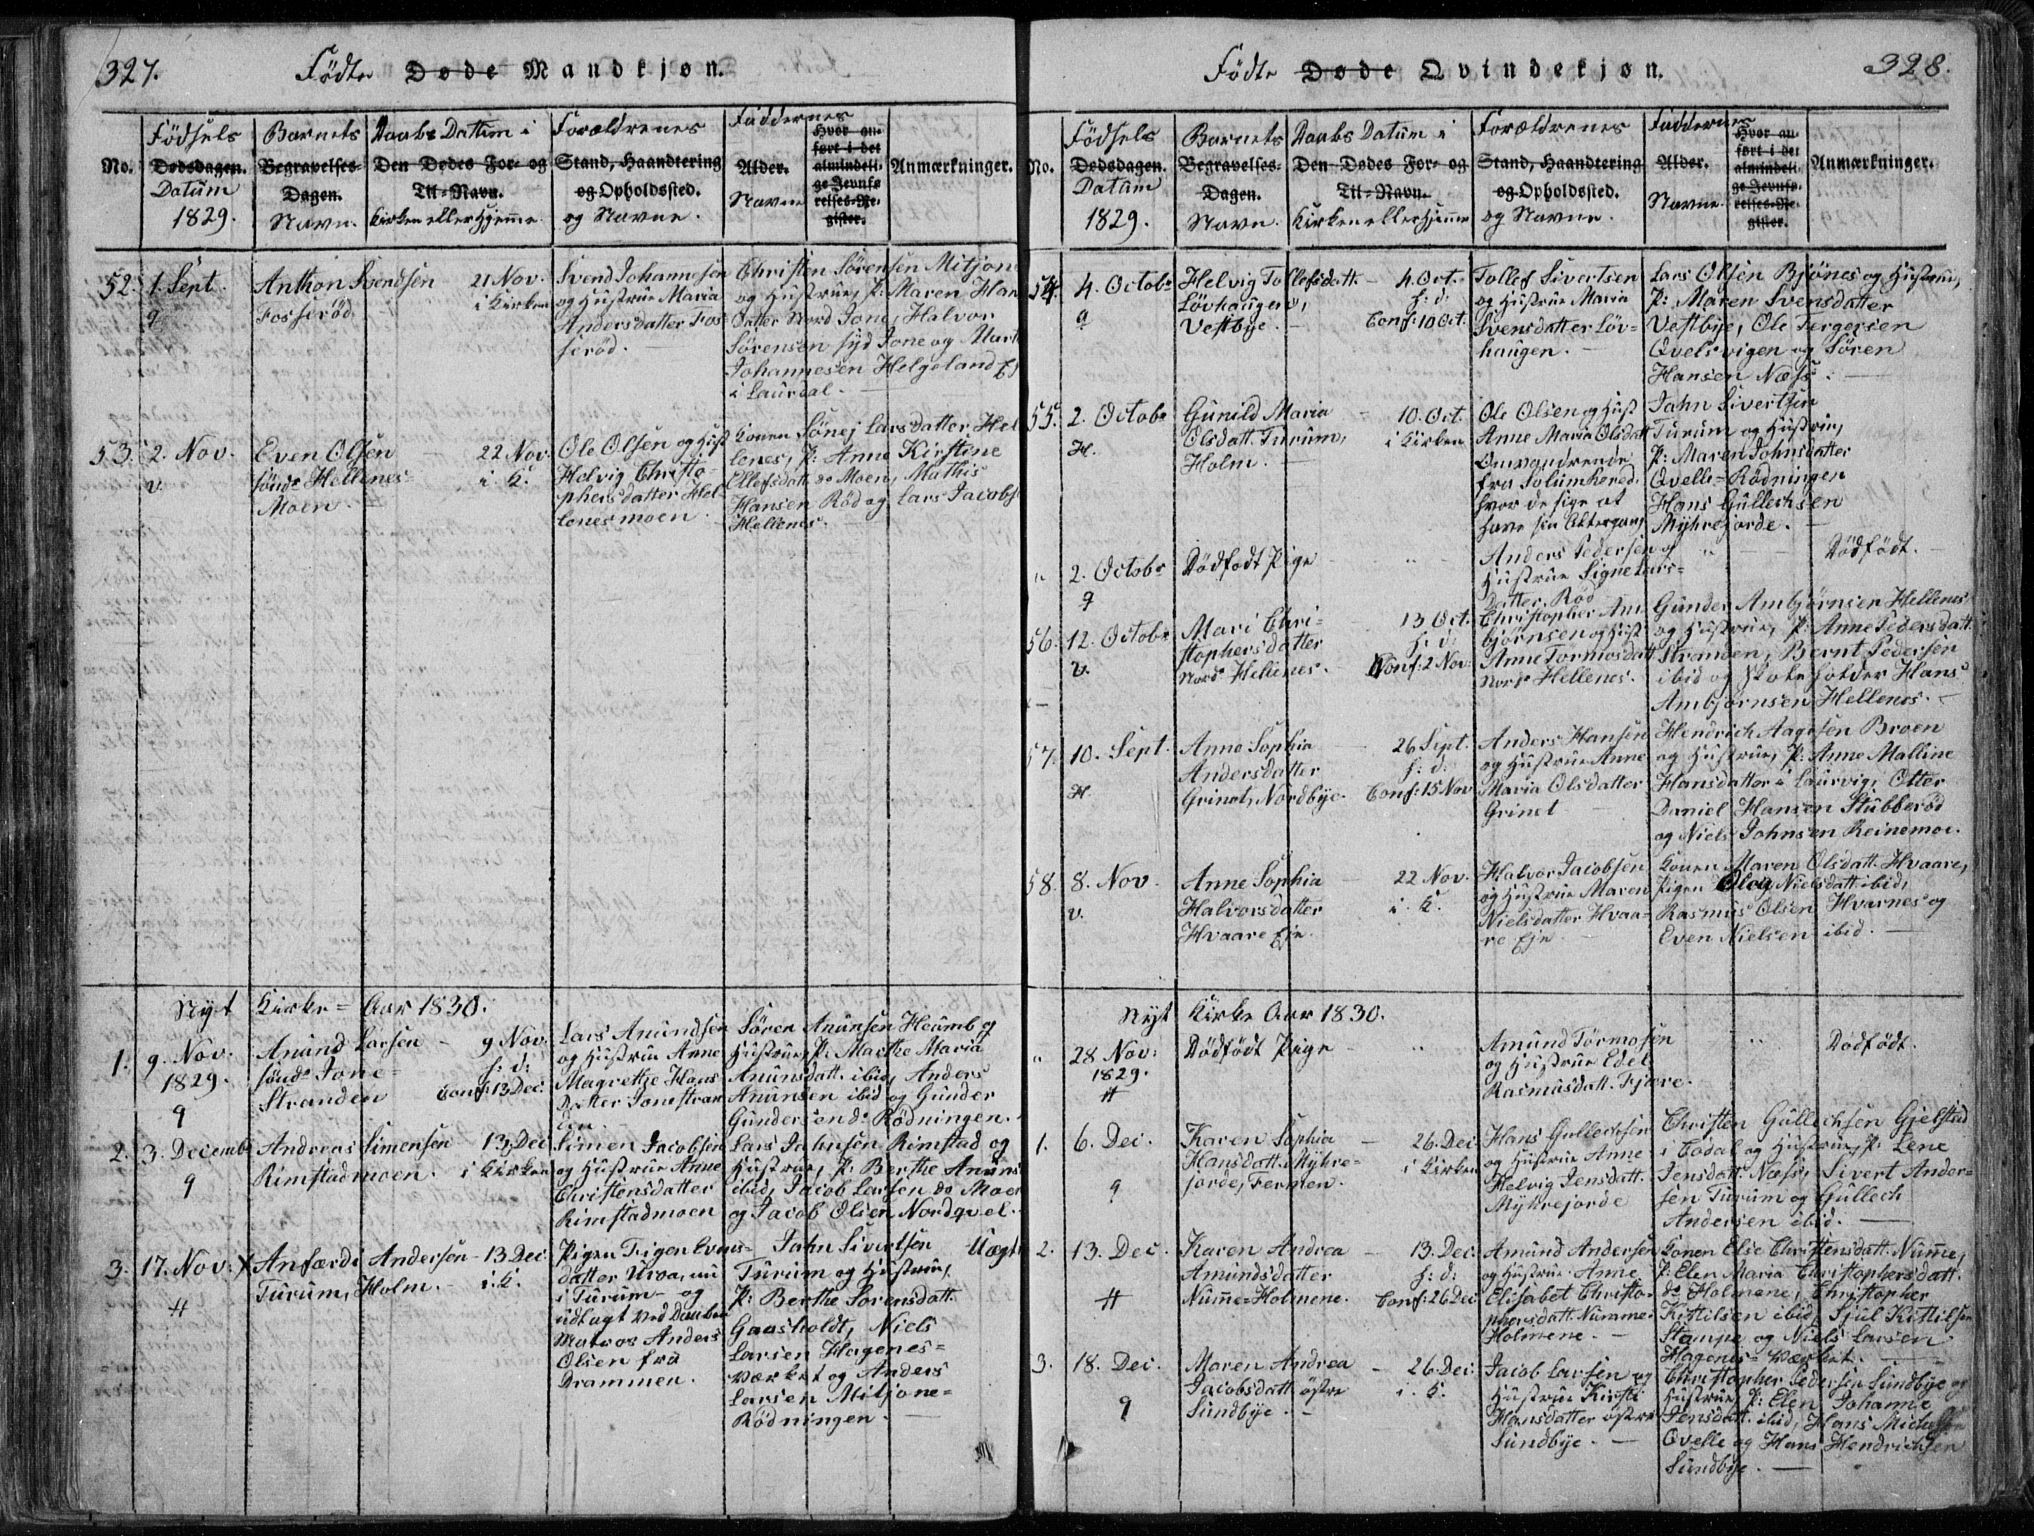 327.
Fødte Døde Mandkjøn.
No.
Fødsels
Dødsdagen.
Datum
1829.
Barnets
Begravelses-
Dagen.
Navn.
Daabs Datum i
Den Dødes For- og
Til-Navn.
Kirken eller Hjemme
Forældrenes
Stand, Haandtering
og Opholdssted.
og Navne.
Faddernes
Alder.
Navne
Hvor an-
ført i det
almindeli-
ge Jevnfø-
relses-Re-
gister.
Anmærkninger.
52.
1. Sept.
9
Anthon Svendsen
Fosserød
21 Nov.
i Kirken
Svend Johannesen
og Hustrue Maria
Andersdatter Fos-
serød.
Christen Sørensen Mitjon
og Hustrue, P: Maren Han
Datter Nord Jone, Halvor
Sørensen syd Jone og Mart
Johannesen Helgeland
i Laurdal.
53.
2. Nov.
v.
Even Olsen
sønd: Hellenes-
Moen.
22 Nov.
i. K.
Ole Olsen og Hust
Helvig Christo-
phersdatter Hel-
lenesmoen.
Konen Larsdatter Hel
lenes, P: Anne Kirstine
Ellefsdatt: do Moen, Mathis
Hansen Rød og Lars Jacobs
Hellenes.
Nyt Kirke-Aar 1830.
1.
9. Nov.
1829.
9
Anund Larsen
sønd: Jone-
Stranden
9 Nov.
h: d:
Conf: 13 Dec:
Lars Anundsen
og Hustrue Anne
Magrethe Hans
Datter Jonestran
den.
Søren Anunsen Heumb og
Hustrue, P: Marthe Maria
Anunsdatt. ibid, Anders
Anunsen ibid og Gunder
Gundersen do Rødningen.
2.
3. Decemb
9
Andreas Simensen
Rimstadmoen.
13 Dec
i Kirken
Simen Jacobsen
og Hustrue Anne
Christensdatter
Rimstadmoen
Lars Jahnsen Rimstad og
Hustrue, P: Berthe Anuns
ibid, Jacob Larsen do Moen
og Jacob Olsen Nordqvel.
3.
17. Nov: X
H
Anfærd Andersen
Turum, Holm.
13 Dec:
i. K.
Pigen Trigon Evens-
datter Urva, nu
i Turum og
udlagt ved Daaben
Matros Anders
Olsen fra
Drammen.
Jahn Sivertsen
Turum og Hustrue,
P: Berthe Sørensdatt.
Gaasholdt, Niels
Larsen Hagenes-
værket og Anders
Larsen Mitjone-
Rødningen.
Uægte
328.
Fødte Døde Qvindekjøn.
No.
Fødsels
Dødsdagen.
Datum
1829.
Barnets
Begravelses-
Dagen.
Navn.
Daabs Datum i
Den Dødes For- og
Til-Navn.
Kirken eller Hjemme
Forældrenes
Stand, Haandtering
og Opholdssted.
og Navne.
Faddernes
Alder.
Navne
Hvor an-
ført i det
almindeli-
ge Jevnfø-
relses-Re-
gister.
Anmærkninger.
54.
4. Octobr
9
Helvig Tollefsdatt.
Løvhaugen,
Vestbye.
4. Oct.
h: d:
Conf: 10 Oct.
Tollef Sivertsen
og Hustrue Maria
Svensdatter Løv-
haugen.
Lars Olsen Bjønes og Hustrue,
P: Maren Svensdatter
Vestbye, Ole Tergersen
Qvelsvigen og Søren
Hansen Næss.
55.
2. Octobr
H.
Gunild Maria
Olsdatt. Turum,
Holm.
10. Oct.
i Kirken
Ole Olsen og Hust
Anne Maria Olsdatt
Omvandrende
fra Solumhered.
hvor de sige at
have sin
Jahn Sivertsen
Turum og Hustrue,
P: Maren Johnsdatter
Qvelle-Rødningen
Hans Gullechsen
Myhrejorde.
"
2. Octobr
9
Dødfødt Pige
Anders Pedersen og
Hustrue Signe Lars-
datter, Rød
Dødfødt.
56.
12. Octobr
v.
Mari Chri-
stophersdatter
Nord: Hellenes.
13 Oct.
h: d:
Conf: 2 Nov:
Christopher Am-
bjørnsen og Hust
Anne Tormosdatt
Nord: Hellenes.
Gunder Ambjørnsen Hellenes
og Hustrue, P: Anne Pedersdatt.
Stranden, Bernt Pedersen
ibid og Hans
Ambjørnsen Hellenes.
57.
10. Sept.
H.
Anne Sophia
Andersdatter
Grinet, Nordbye.
26 Sept.
h: d:
Conf: 15 Nov
Anders Hansen
og Hustrue Anne
Maria Olsdatter
Grinet
Hendrich Aagesen Broen
og Hustrue, P: Anne Malline
Hansdatter i Laurvig, Otter
Daniel Hansen Stubberød
og Niels Johnsen Reinemoe.
58.
8. Nov.
v.
Anne Sophia
Halvorsdatter
Hvaare Eje.
22 Nov.
i. K.
Halvor Jacobsen
og Hustrue Maren
Nielsdatter Hvaa-
re Eje
Konen Maren Olsdatt. Hvaare,
Pigen Oleg Nielsdatt. ibid,
Rasmus Olsen Hvarnes og
Even Nielsen ibid.
Nyt Kirke Aar 1830.
"
28 Nov:
1829.
H
Dødfødt Pige
Amund Tormosen
og Hustrue Edel
Rasmusdatt. Fjære.
Dødfødt.
1.
6. Dec.
9
Karen Sophia
Hansdatt. Myhre-
jorde, Fermen.
26. Dec
i Kirken
Hans Gullechsen
og Hustrue Anne
Helvig Jensdatt.
Myhrejorde
Christen Gullechsen Gjelstad
i Lodal og Hustrue, P: Lene
Jensdatt. Næss, Sivert Ander-
sen Turum og Gullech
Andersen ibid.
2.
13. Dec.
H
Karen Andrea
Amundsdatter
Numme-Holmene.
13. Dec.
h: d:
Conf: 26 Dec
Amund Andersen
og Hustrue Anne
Elisabet Christo-
phersdatt. Numme-
Holmene.
Konen Else Christensdatt. Numme,
P: Elen Maria Christophersdatt.
do Holmene, Christopher
Kittilsen ibid, Sjul Kittilsen
Stampe og Niels Larsen
Hagenes-værket.
3.
18. Dec.
9
Maren Andrea
Jacobsdatt. østre
Sundbye.
26 Dec:
i. K.
Jacob Larsen og
Hustrue Kirsti
Hansdatter østre
Sundbye.
Christopher Pedersen Sundbye og
Hustrue, P: Elen Johanne
Jensdatt. ibid, Hans Michelsen
Qvelle og Hans Hendrichsen
Sundbye.